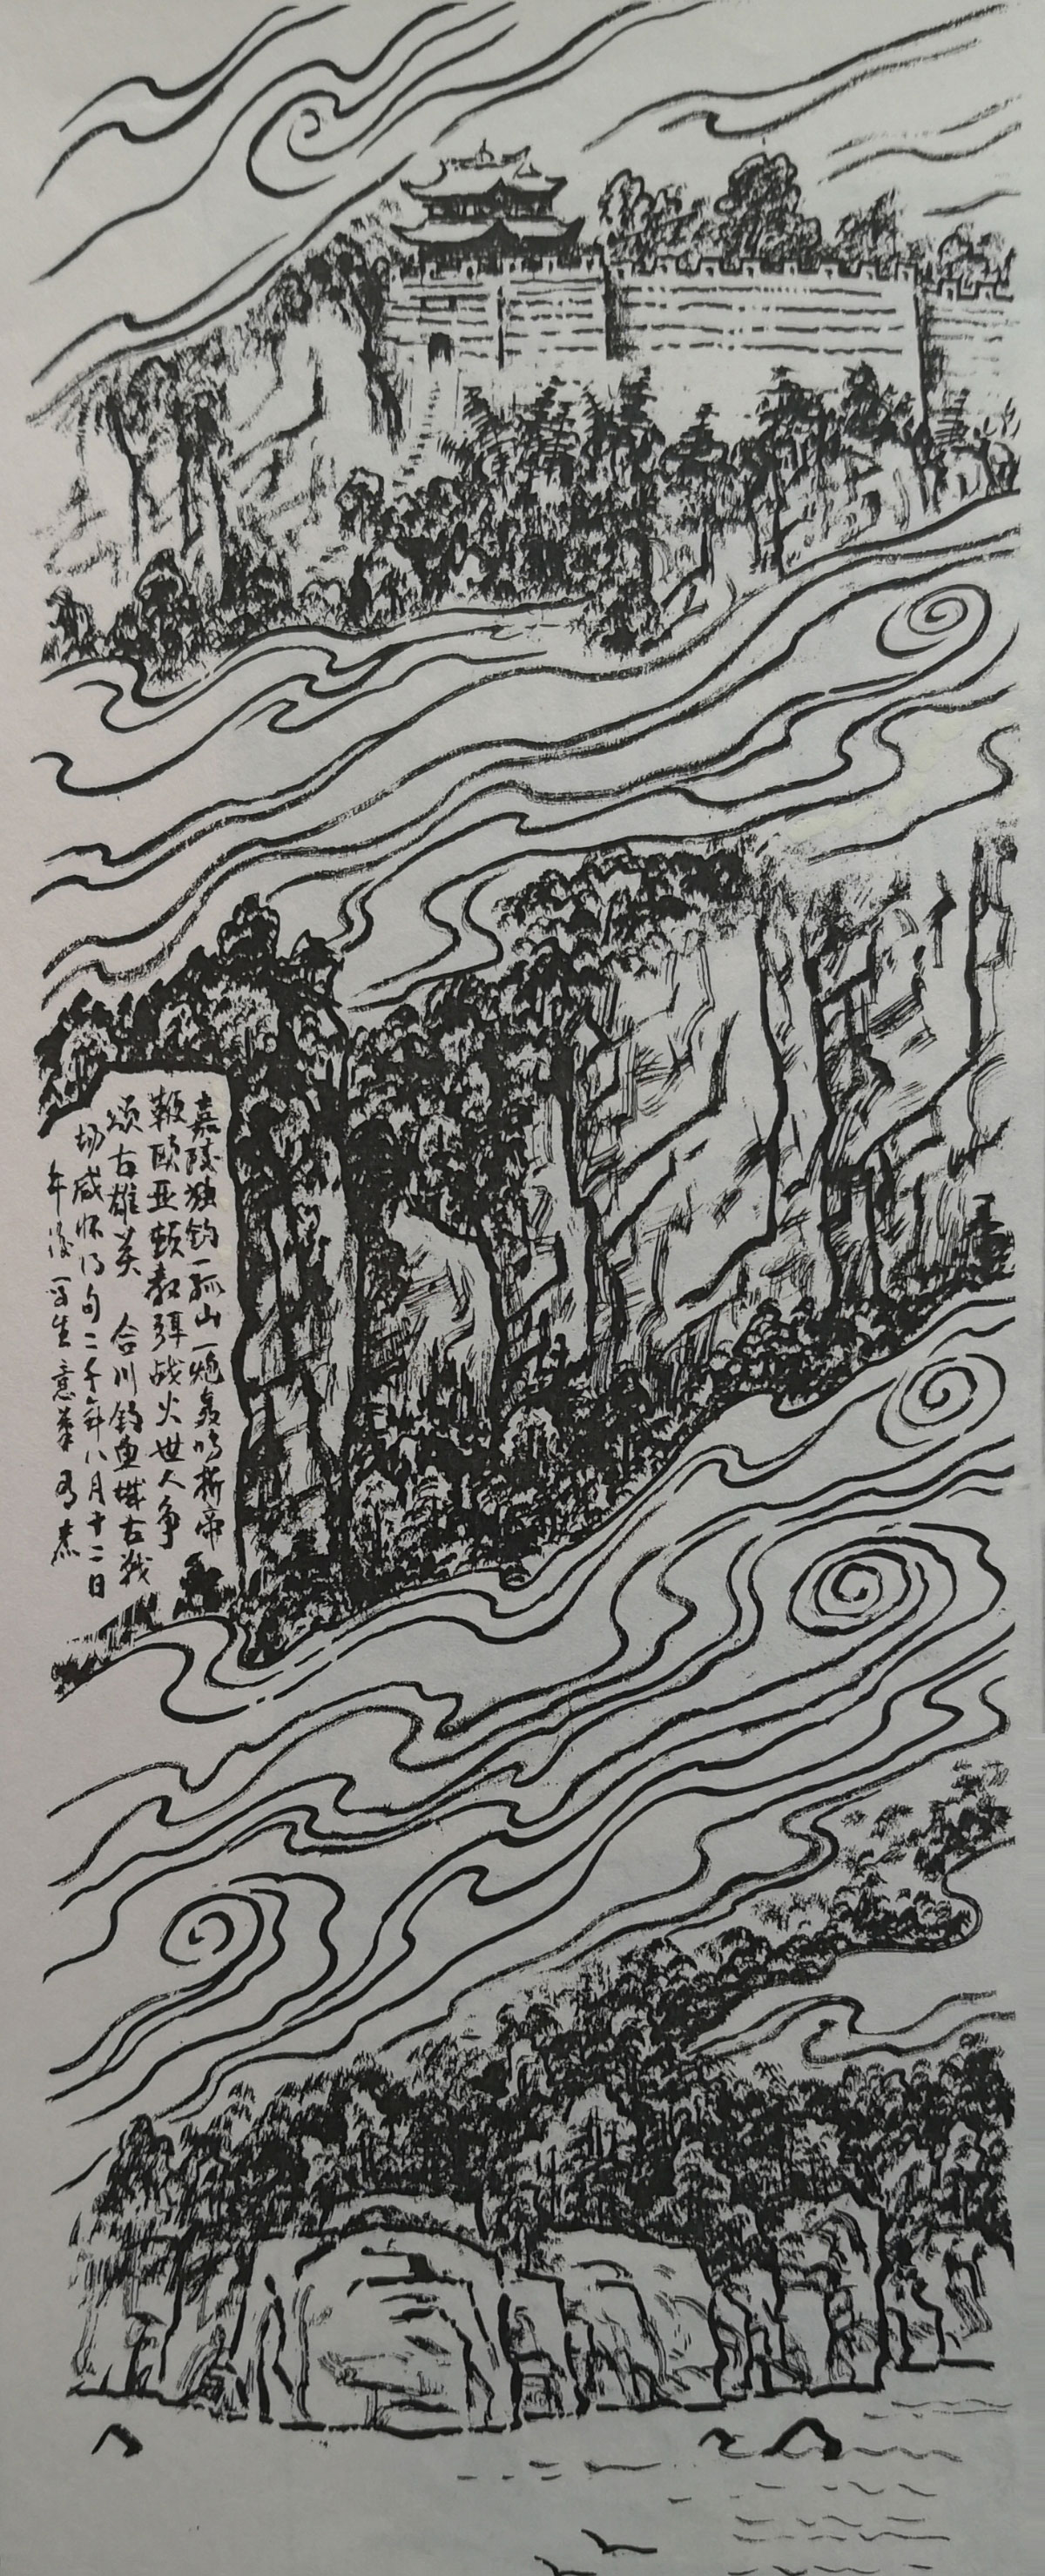 嘉陵独钓一孤山一炮轰鸣折帝
鞭欧亚颓毁弭战火世人争
颂古雄英 合川钓鱼城古战
场感怀得句二千年八月十二日
年后写生意笔